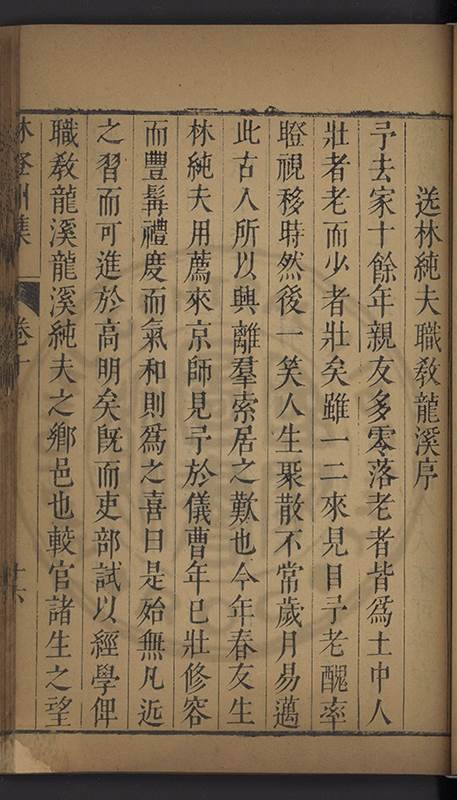 送林純夫職敎龍溪序
予去家十餘年親友多零落老者皆爲土中人
壯者老而少者壯矣雖一二來見目予老醜率
瞪視移時然後一笑人生聚散不常歲月易邁
此古人所以興離羣索居之歎也今年春友生
林純夫用薦來京師見予於儀曹年已壯修容
而豐髯禮度而氣和則爲之喜曰是殆無凡近
之習而可進於高明矣旣而吏部試以經學俾
職敎龍溪龍溪純夫之鄉邑也較官諸生之望
林登州集
卷十
十六